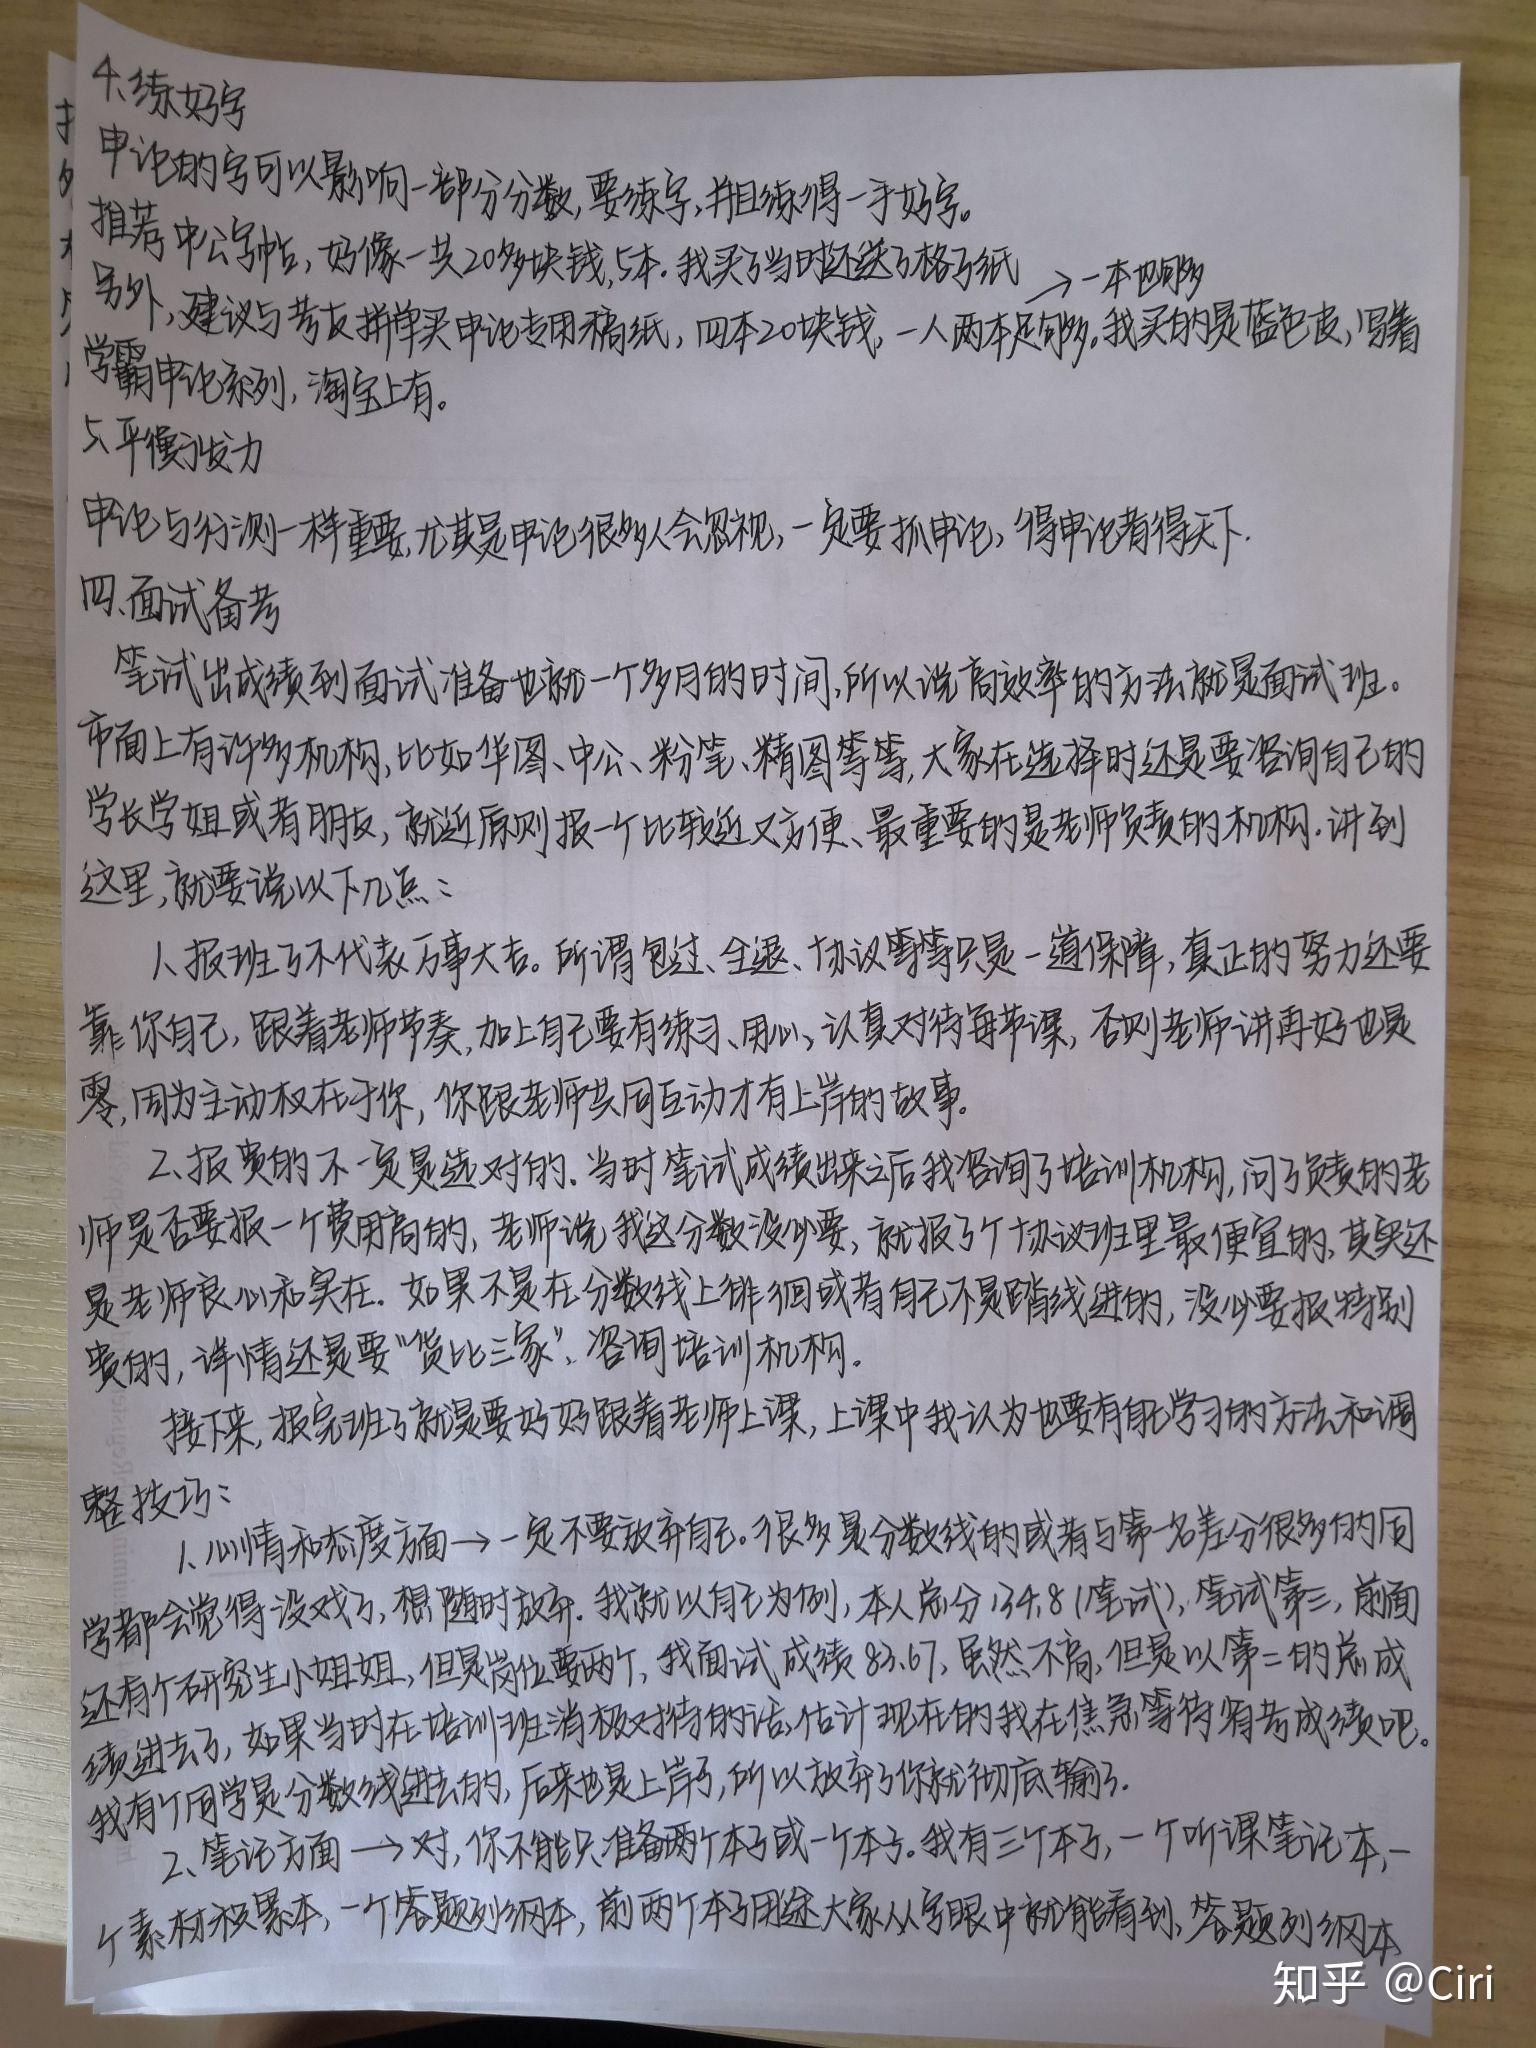 4、练好字
申论的字可以影响一部分分数,要练字,并且练得一手好字。
推荐中公字帖,好像一共20多块钱,5本.我买了当时还送了格子纸
→一本也够
另外,建议与考友拼单买申论专用稿纸,四本20块钱,一人两本足够。我买的是蓝色皮,写着
学霸申论系列,淘宝上有。
5、平衡发力
申论与行测一样重要,尤其是申论很多人会忽视,一定要抓申论,得申论者得天下.
四、面试备考
笔试出成绩到面试准备也就一个多月的时间,所以说高效率的方法就是面试班。
市面上有许多机构,比如华图、中公、粉笔、精图等等,大家在选择时还是要咨询自己的
学长学姐或者朋友,就近原则报一个比较近又方便、最重要的是老师负责的机构.讲到
这里,就要说以下几点:
1、报班了不代表万事大吉。所谓包过、全退、协议等等只是一道保障,真正的努力还要
靠你自己,跟着老师节奏,加上自己要有练习、用心、认真对待每节课,否则老师讲再好也是
零,因为主动权在于你,你跟老师共同互动才有上岸的故事.
2、报贵的不一定是选对的.当时笔试成绩出来之后我咨询了培训机构,问了负责的老
师是否要报一个费用高的,老师说我这分数没必要,就报了个协议班里最便宜的,其实还
是老师良心和实在.如果不是在分数线上徘徊或者自己不是踏线进的,没必要报特别
贵的,详情还是要“货比三家”、咨询培训机构.
接下来,报完班了就是要好好跟着老师上课,上课中我认为也要有自己学习的方法和调
整技巧:
1、心情和态度方面→一定不要放弃自己。很多是分数线的或者与第一名差分很多的同
学都会觉得没戏了,想随时放弃.我就以自己为例,本人总分134.8(笔试),笔试第三,前面
还有个研究生小姐姐,但是岗位要两个,我面试成绩83.67,虽然不高,但是以第二的总成
绩进去了,如果当时在培训班消极对待的话,估计现在的我在焦急等待省考成绩吧。
我有个同学是分数线进去的,后来也是上岸了,所以放弃了你就彻底输了.
2、笔记方面→对,你不能只准备两个本子或一个本子.我有三个本子,一个听课笔记本,一
个素材积累本,一个答题列纲本,前两个本子用途大家从字眼中就能看到,答题列纲本
知乎 @Ciri